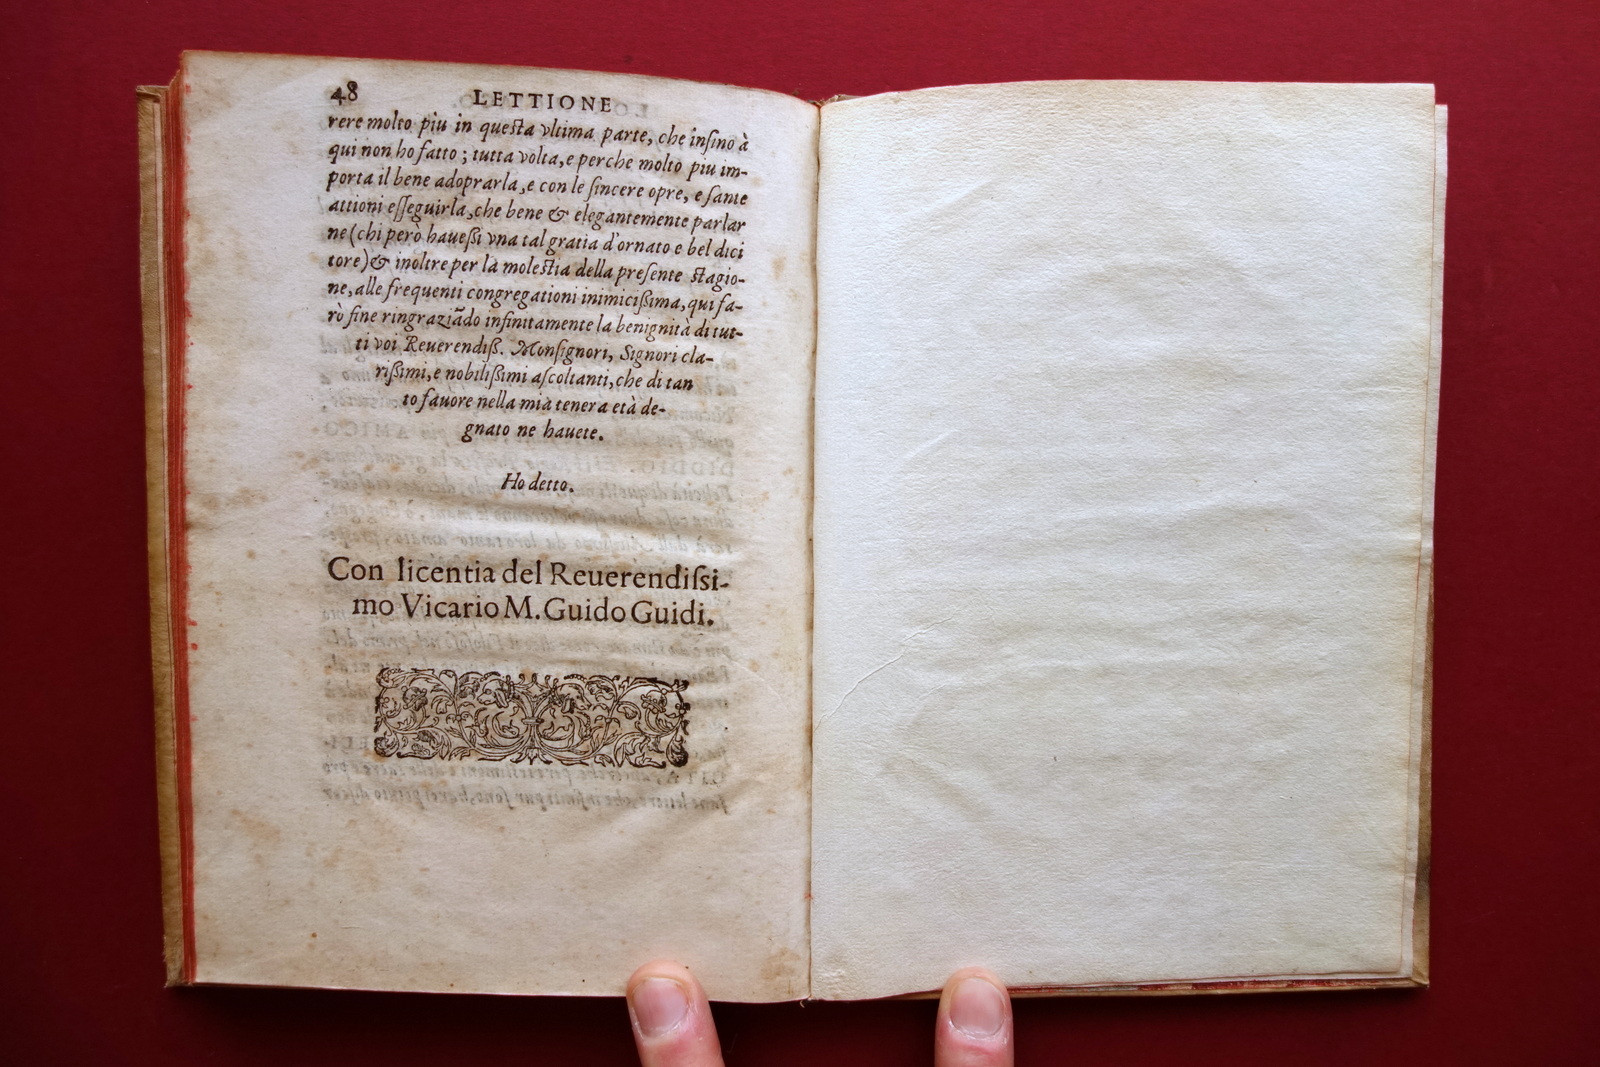 48 LETTIONE
rere molto piu in questa vltima parte, che insino à
qui non ho fatto; tutta volta, e perche molto piu im-
porta il bene adoprarla, e con le sincere opre, e sante
attioni esseguirla, che bene & elegantemente parlar
ne (chi però hauessi vna tal gratia d'ornato e bel dici
tore) & inoltre per la molestia della presente stagio-
ne, alle frequenti congregationi inimicißima, qui fa-
rò fine ringraziãdo infinitamente la benignità di tut-
ti voi Reuerendiß. Monsignori, Signori cla-
rißimi, e nobilißimi ascoltanti, che di tan
to fauore nella mia tenera età de-
gnato ne hauete.
Ho detto.
Con licentia del Reuerendissi-
mo Vicario M. Guido Guidi.